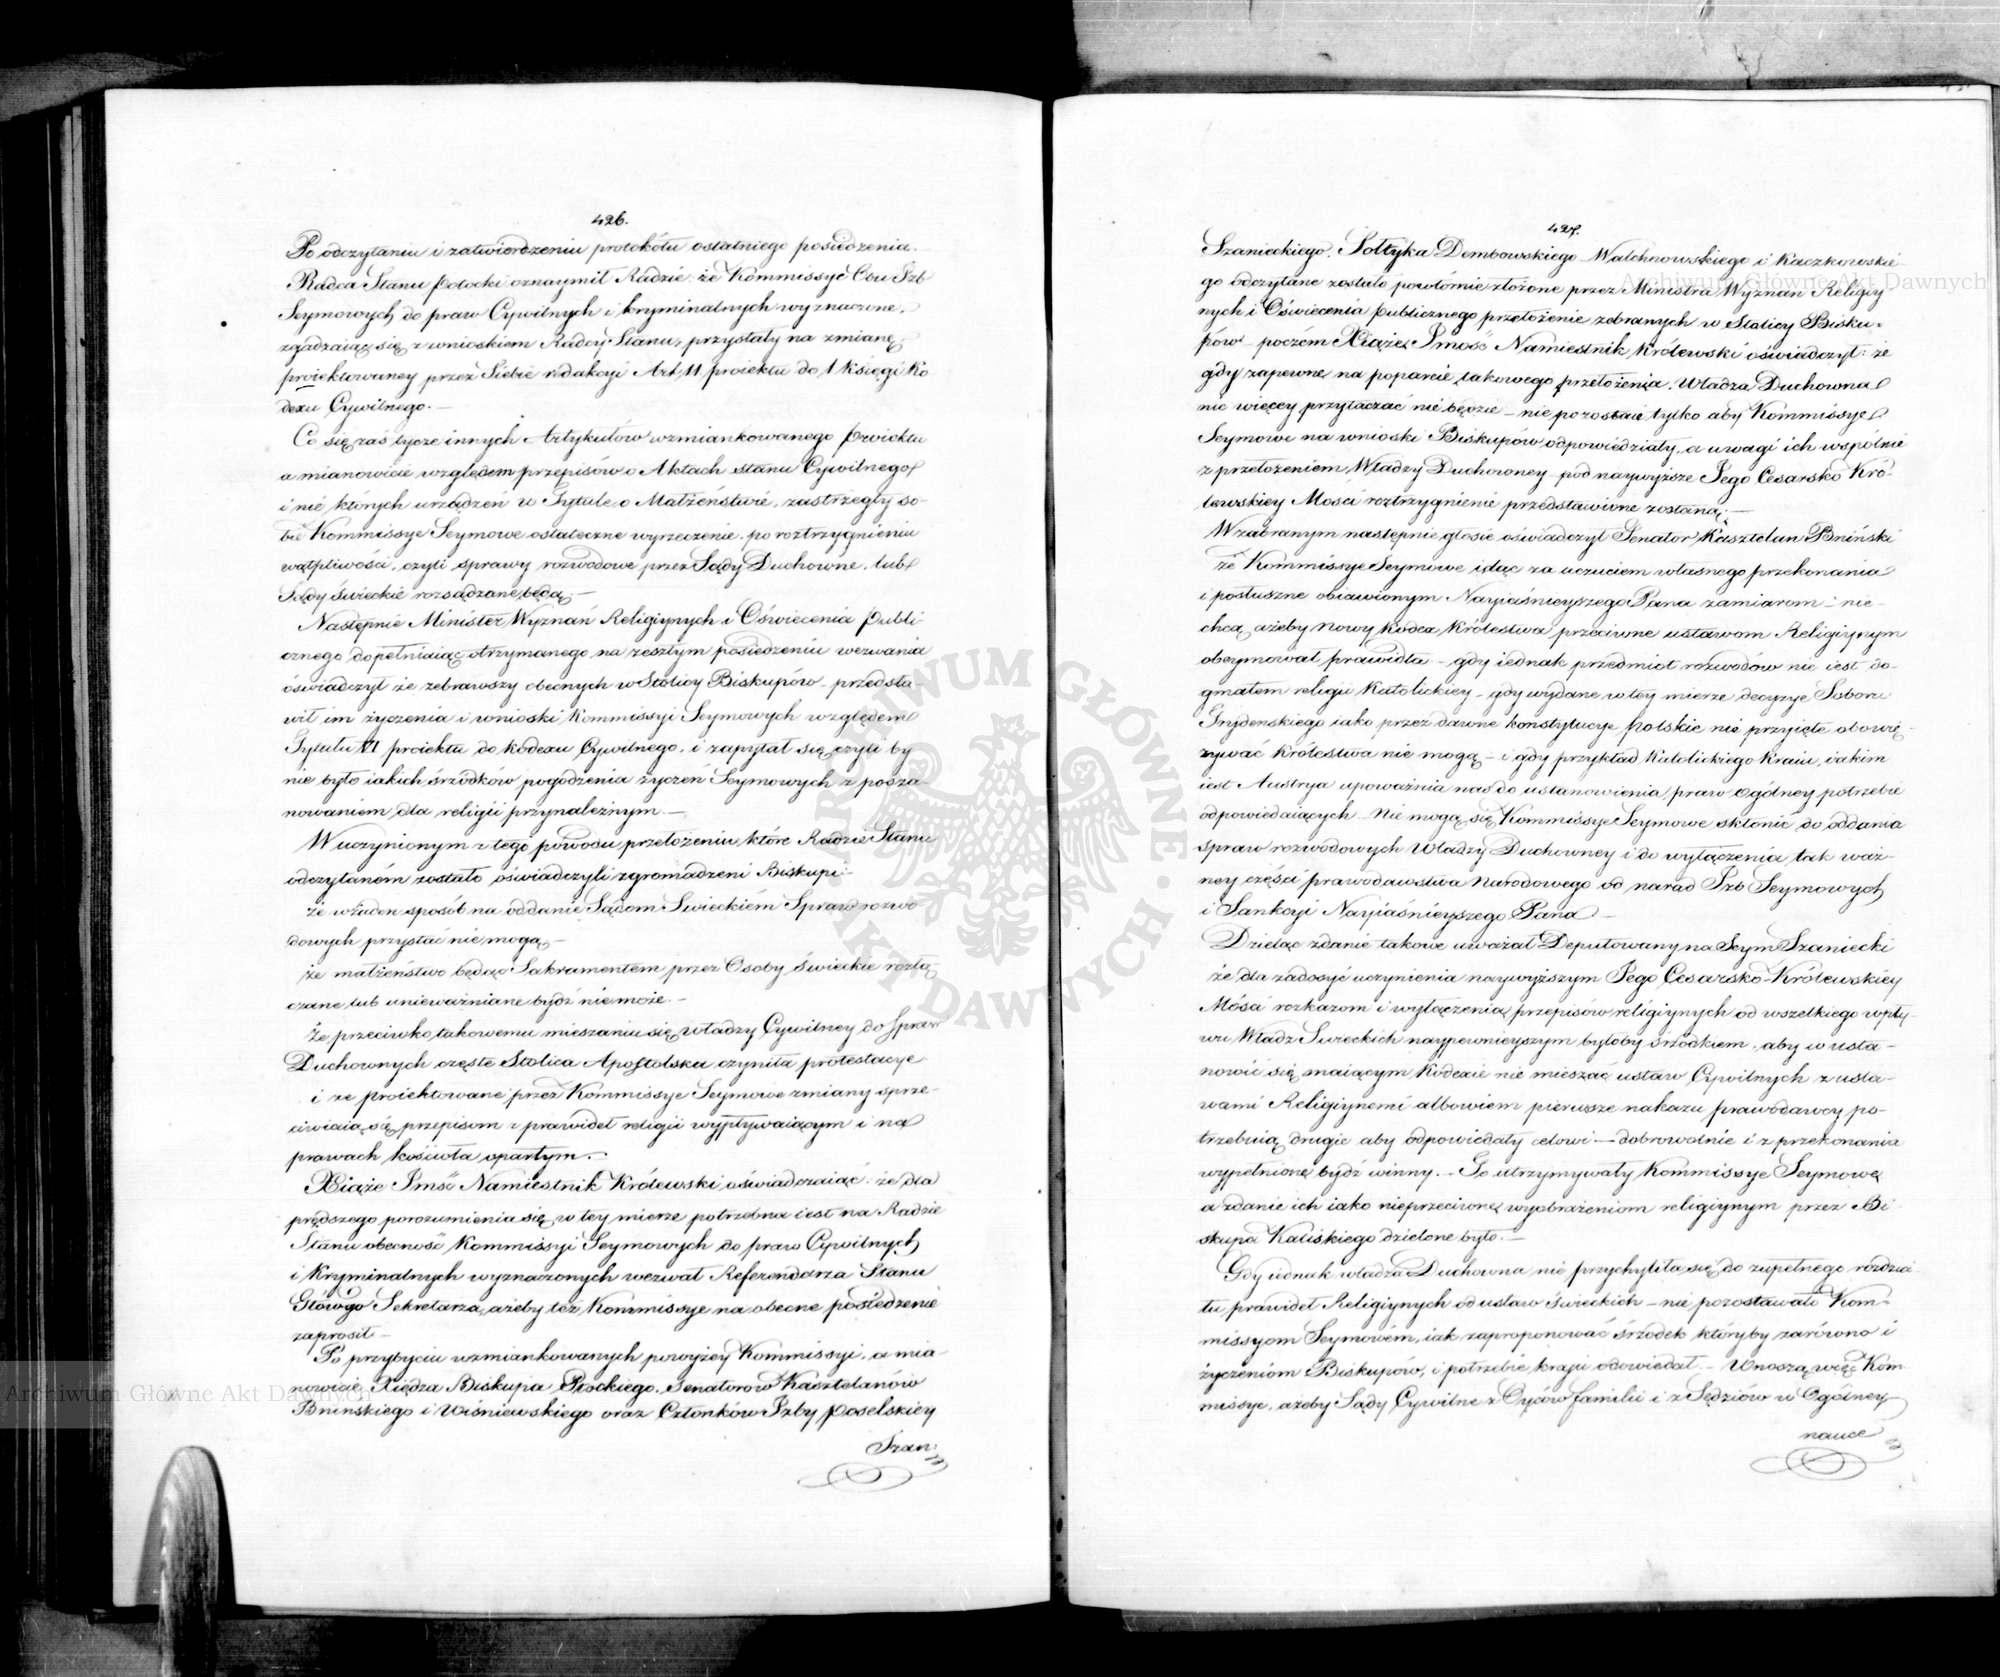 426.
Po odczytaniu i zatwierdzeniu protokółu ostatniego posiedzenia.
Radca Stanu Potocki oznaymił Radzie: że Kommissye Obu Izb
Seymowych do praw Cywilnych i kryminalnych wyznaczone,
zgadzaiąc się z wnioskiem Radcy Stanu, przystały na zmianę
proiektowaney przez Siebie redakcyi Art. 11 proiektu do 1 Księgi Ko
dexu Cywilnego. —
Co się zaś tycze innych Artykułów wzmiankowanego proiektu
a mianowicie względem przepisów o Aktach stanu Cywilnego
i nie których urządzeń w Tytule o Małżeństwie, zastrzegły so-
bie Kommissye Seymowe ostateczne wyrzeczenie po roztrzygnieniu
wątpliwości, czyli sprawy rozwodowe przez Sądy Duchowne, lub
Sądy świeckie rozsądzane będą. —
Następnie Minister Wyznań Religiynych i Oświecenia Publi-
cznego dopełniaiąc otrzymanego na zeszłym posiedzeniu wezwania
oświadczył że zebrawszy obecnych w Stolicy Biskupów – przedsta-
wił im życzenia i wnioski Kommissyi Seymowych względem
Tytułu VI proiektu do Kodexu Cywilnego, i zapytał się czyli by
nie było iakich śrzodków pogodzenia życzeń Seymowych z posza-
nowaniem dla religii przynależnym. —
W uczynionym z tego powodu przełożeniu, które Radzie Stanu
odczytaném zostało oświadczyli zgromadzeni Biskupi: –
że w żaden sposób na oddanie Sądom Swieckiém Spraw rozwo
dowych przystać nie mogą –
że małżeństwo będąc Sakramentem przez Osoby świeckie rozłą
czane lub unieważniane bydź nie może. –
Że przeciwko takowemu mieszaniu się władzy Cywilney do spraw
Duchownych częste Stolica Apostolska czyniła protestacye
i że proiektowane przez Kommissye Seymowe zmiany sprze-
ciwiaią się przepisom z prawideł religii wypływaiącym i na
prawach kościoła opartym. –
Xiąże Imść Namiestnik Królewski oświadczaiąc: że dla
prędszego porozumienia się w tey mierze potrzebna iest na Radzie
Stanu obecność Kommissyi Seymowych do praw Cywilnych
i Kryminalnych wyznaczonych wezwał Referendarza Stanu
Głównego Sekretarza, ażeby też Kommissye na obecne posiedzenie
zaprosił. –
Po przybyciu wzmiankowanych powyżey Kommissyi, a mia-
nowicie Xiędza Biskupa Płockiego, Senatorów Kasztelanów
Bnińskiego i Wiśniewskiego oraz Członków Izby Poselskiey
Szan:
427.
Szanieckiego, Sołtyka Dembowskiego Walchnowskiego i Kaczkowskie
go odczytane zostało powtórnie złożone przez Ministra Wyznań Religiy-
nych i Oświecenia Publicznego przełożenie zebranych w Stolicy Bisku-
pów – poczém Xiąże Jmość Namiestnik Królewski oświadczył: że
gdy zapewne na poparcie takowego przełożenia, Władza Duchowna
nic więcey przytaczać nie będzie – nie pozostaie tylko aby Kommissye
Seymowe na wnioski Biskupów odpowiedziały, a uwagi ich wspólnie
z przełożeniem Władzy Duchowney – pod naywyższe Jego Cesarsko Kró-
lewskiey Mości roztrzygnienie przedstawione zostaną. —
W zabranym następnie głosie oświadczył Senator Kasztelan Bniński
że Kommissye Seymowe idąc za uczuciem własnego przekonania
i posłuszne obiawionym Nayiaśnieyszego Pana zamiarom – nie-
chcą ażeby Nowy Kodex Królestwa przeciwne ustawom Religiynym
obeymował prawidła – gdy iednak przedmiot rozwodów nie iest do-
gmatem religii Katolickiey – gdy wydane w tey mierze decyzye Soboru
Trydenskiego iako przez dawne konstytucye Polskie nie przyięte obowię-
zywać Królestwa nie mogą – i gdy przykład Katolickiego Kraiu, iakim
iest Austrya upoważnia nas do ustanowienia praw ogólney potrzebie
odpowiedaiących – Nie mogą się Kommissye Seymowe skłonić do oddania
spraw rozwodowych Władzy Duchowney i do wyłączenia tak waż-
ney części prawodawstwa Narodowego od narad Izb Seymowych
i Sankcyi Nayiaśnieyszego Pana –
Dzieląc zdanie takowe uważał Deputowany na Seym Szaniecki
że dla zadosyć uczynienia naywyższym Jego Cesarsko-Królewskiey
Mości rozkazom i wyłączenia przepisów religiynych od wszelkiego wpły-
wu Władz Swieckich naypewnieyszym byłoby śrzodkiem, aby w usta-
nowić się maiącym Kodexie nie mieszać ustaw Cywilnych z usta-
wami Religiynemi albowiem pierwsze nakazu prawodawcy po-
trzebuią drugie aby odpowiedały celowi – dobrowolnie i z przekonania
wypełnione bydź winny. – To utrzymywały Kommissye Seymowe
a zdanie ich iako nieprzeciwne wyobrażeniom religiynym przez Bi-
skupa Kaliskiego dzielone było. —
Gdy iednak władza Duchowna nie przychyliła się do zupełnego rozdzia
łu prawideł Religiynych od ustaw świeckich – nie pozostawało Kom-
missyom Seymowém, iak zaproponować śrzodek któryby zarówno i
życzenióm Biskupów, i potrzebie kraju odpowiedał. – Wnoszą więc Kom
missye, ażeby Sądy Cywilne z Oyców familii i z Sędziów w Ogólney
nauce
ARCHIWUM GŁÓWNE AKT DAWNYCH
Archiwum Główne Akt Dawnych
Archiwum Główne Akt Dawnych